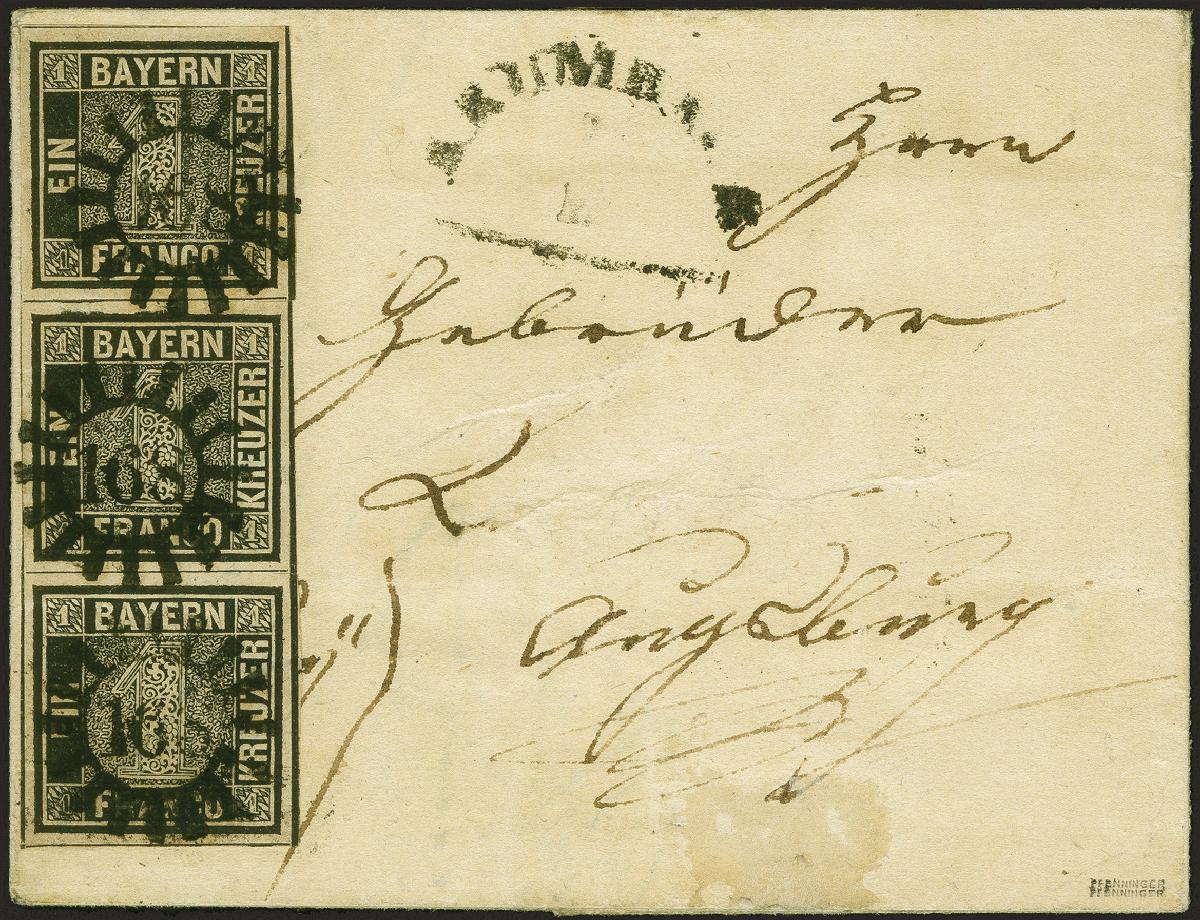 1 BAYERN 1
EIN
1
KREUZER
1 FRANCO 1
1 BAYERN 1
EIN
1
KREUZER
1 FRANCO 1
1 BAYERN 1
EIN
1
KREUZER
1 FRANCO 1
Herrn
Gebrüder
Augsburg
PFENNINGER
PFENNINGER